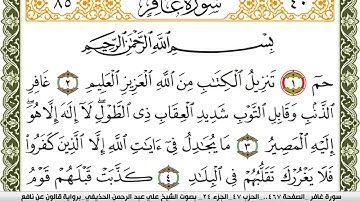 ٨٥ سُورَةُ غَافِر ٤٠
بِسْمِ اللَّهِ الرَّحْمَٰنِ الرَّحِيمِ
حمٓ ١ تَنزِيلُ الْكِتَٰبِ مِنَ اللَّهِ الْعَزِيزِ الْعَلِيمِ ٢ غَافِرِ
الذَّنۢبِ وَقَابِلِ التَّوْبِ شَدِيدِ الْعِقَابِ ذِي الطَّوْلِ لَا إِلَٰهَ إِلَّا هُوَ
إِلَيْهِ الْمَصِيرُ ٣ مَا يُجَٰدِلُ فِي ءَايَٰتِ اللَّهِ إِلَّا الَّذِينَ كَفَرُوا
فَلَا يَغْرُرْكَ تَقَلُّبُهُمْ فِي الْبِلَٰدِ ٤ كَذَّبَتْ قَبْلَهُمْ قَوْمُ
سورة غافر .. الصفحة ٤٦٧.. الحزب ٤٧.. الجزء ٢٤.. بصوت الشيخ علي عبد الرحمن الحذيفي.. برواية قالون عن نافع